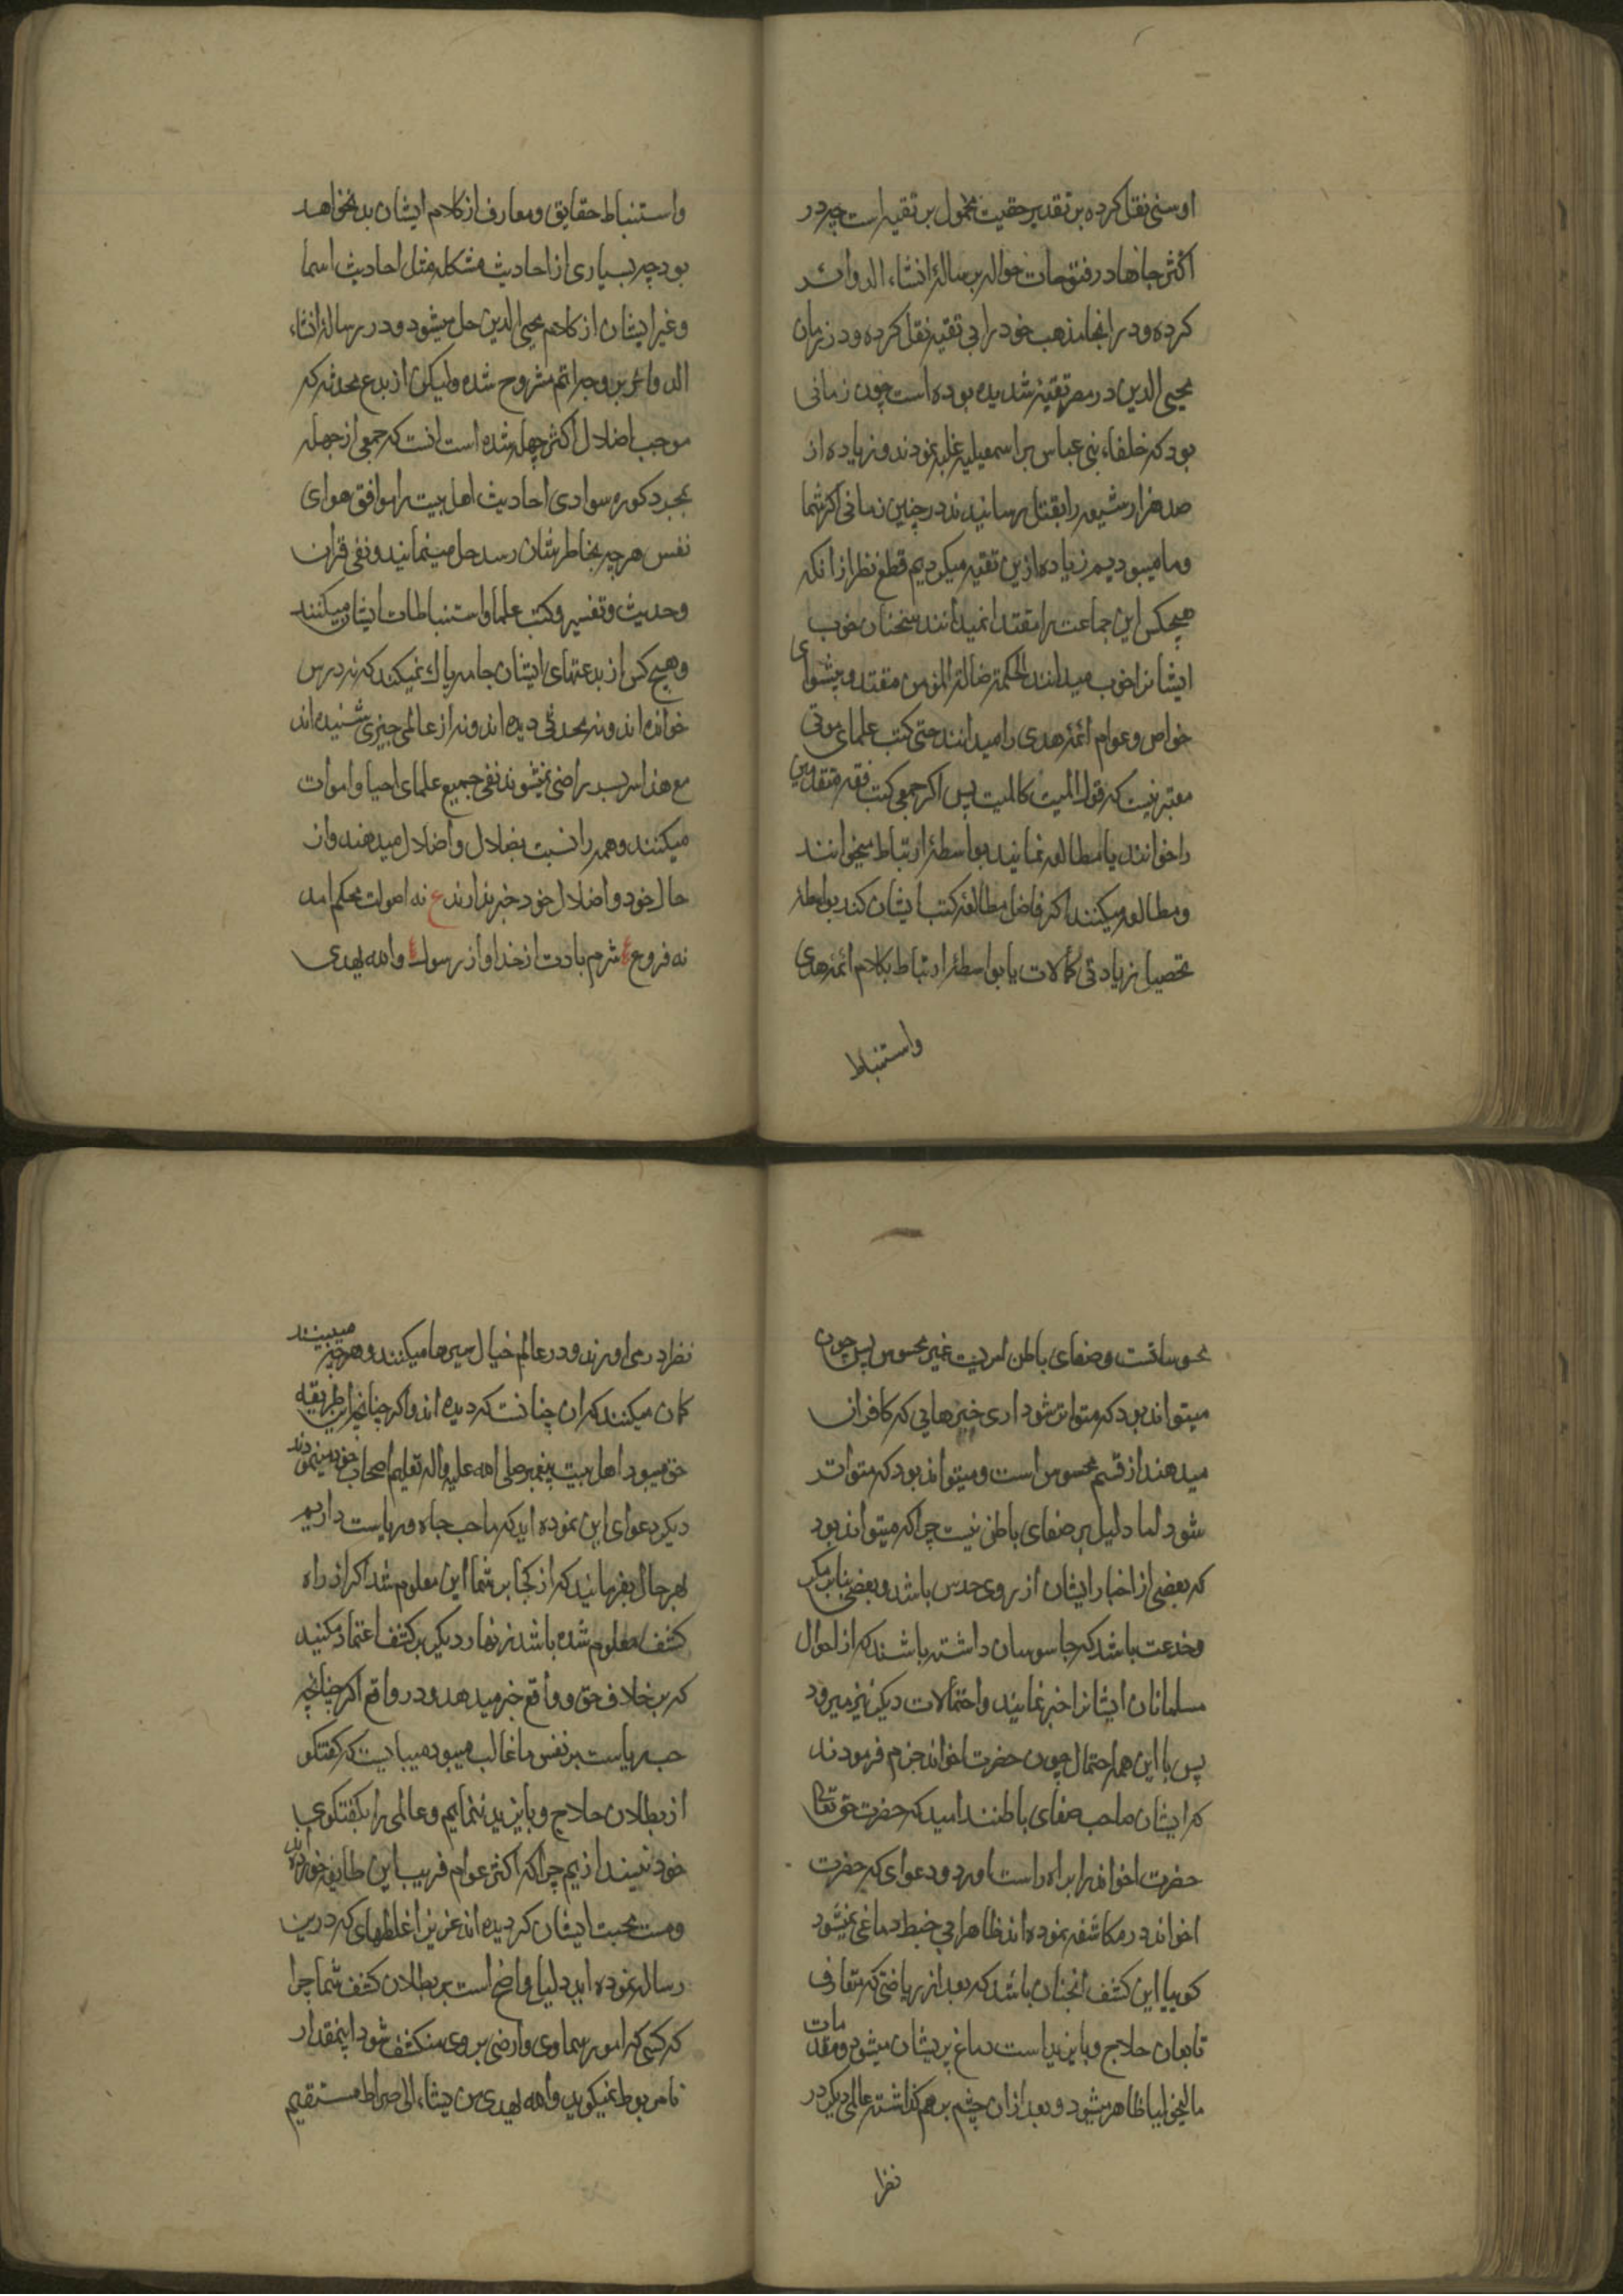 او سنی نقل کرده بر تقدیر حقیت محمول بر تقیه است چه در
اکثر جاها در فتوحات حواله برساله انشاء الدوائر
کرده و در انجا مذهب خود را بی تقیه نقل کرده و در زمان
محیی الدین در مصر تقیه شدیده بوده است چون زمانی
بود که خلفاء بنی عباس بر اسمعیلیه غلبه نمودند و زیاده از
صد هزار شیعه را بقتل رسانیدند در چنین زمانی اکر شما
و ما میبودیم زیاده ازین تقیه میکردیم قطع نظر از انکه
هیچکس این جماعت را مقتدا نمیدانند سخنان خوب
ایشانرا خوب میدانند الحکمة ضالة المؤمن مقتدا و پیشوای
خواص و عوام ائمه هدی را میدانند حتی کتب علمای موتی
معتبر نیست که قول المیت کالمیت پس اکر جمعی کتب فقه متقدمین
را خوانند یا مطالعه نمایند بواسطه ارتباط میخوانند
و مطالعه میکنند اکر فاضلی مطالعه کتب ایشان کند بواسطه
تحصیل زیادتی کمالات یا بواسطه ارتباط بکلام ائمه هدی
واستنباط
واستنباط حقایق و معارف از کلام ایشان بد نخواهد
بود چه بسیاری از احادیث مشکله مثل احادیث اسما
و غیر ایشان از کلام محیی الدین حل میشود و در رساله انشاء
الدوائر بر وجه اتم مشروح شده ولیکن از بدع محدثه که
موجب اضلال اکثر جهله شده است انست که جمعی از جهله
بمجرد کوره سوادی احادیث اهل بیت را موافق هوای
نفس هر چه بخاطرشان رسد حل مینمایند و نفی قران
و حدیث و تفسیر و کتب علما و استنباطات ایشان میکنند
و هیچ کس از بدعتهای ایشان جامه پاک نمیکند که نه درس
خوانده اند و نه محدثی دیده اند و نه از عالمی چیزی شنیده اند
مع هذا سربسر راضی نمیشوند نفی جمیع علمای احیا و اموات
میکنند و همه را نسبت بضلال و اضلال میدهند و از
حال خود و اضلال خود خبر ندارند ع نه اصولت محکم امد
نه فروع ع شرم بادت از خدا و از رسول ع والله یهدی
محسوسا تست و صفای باطن امریست غیر محسوس پس چون
میتواند بود که متواتر شود اری خبرهایی که کافران
میدهند از قسم محسوس است و میتواند بود که متواتر
شود اما دلیل بر صفای باطن نیست چرا که میتواند بود
که بعضی از اخبار ایشان از روی حدس باشد و بعضی بنا بر مکر
و خدعت باشد که جاسوسان داشته باشند که از احوال
مسلمانان ایشانرا خبر نمایند و احتمالات دیکر نیز میرود
پس با این همه احتمال چون حضرت اخوند جزم فرمودند
که ایشان صاحب صفای باطنند امید که حضرت حق تعالی
حضرت اخوند را براه راست اورد و دعوای که حضرت
اخوند در مکاشفه نموده اند ظاهرا بی خبط دماغی نمیشود
کوییا این کشف انچنان باشد که بعد از ریاضتی که متعارف
تابعان حلاج و بایزید است دماغ پریشان میشود و مقدمات
مالیخولیا ظاهر میشود و بعد از ان چشم بر هم کذاشته عالمی دیکر در
نظر
نظر در می اورند و در عالم خیال سیرها میکنند و هر چه میبینند
کمان میکنند که ان چنانست که دیده اند و اکر چنانچه این طریقه
حق میبود اهل بیت پیغمبر صلی الله علیه واله تعلیم اصحاب خود مینمودند
دیکر دعوای این نموده اید که ما حب جاه و ریاست داریم
بهر حال بفرمایید که از کجا بر شما این معلوم شد اکر از راه
کشف معلوم شده باشد زنهار دیکر بر کشف اعتماد مکنید
که بر خلاف حق و واقع خبر میدهد و در واقع اکر چنانچه
حب ریاست بر نفس ما غالب میبود میبایست که گفتکو
از بطلان حلاج و بایزید ننماییم و عالمی را بکفتکوی
خود نیندازیم چرا که اکثر عوام فریب این طایفه خورده اند
و مست محبت ایشان کردیده اند عزیز من غلطهای که درین
رساله نموده اید دلیل واضح است بر بطلان کشف شما چرا
که کسی که امور سماوی و ارضی بر وی منکشف شود اینمقدار
نامربوط نمیکوید والله یهدی من یشاء الی صراط مستقیم